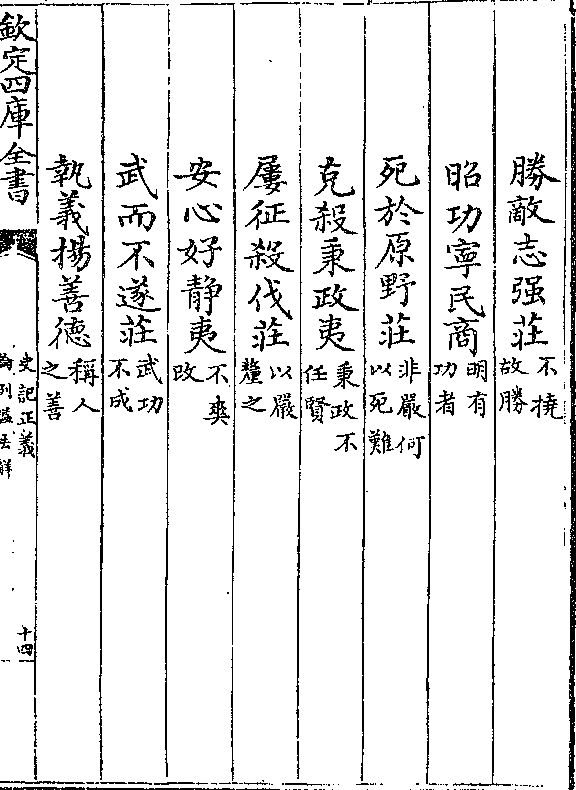 勝敵志强莊不撓故勝
昭功寧民商明有功者
死於原野莊非嚴何以死難
克殺秉政夷秉政不任賢
屢征殺伐莊以嚴釐之
安心好静夷不爽政
武而不遂莊武功不成
執義揚善德稱人之善
欽定四庫全書
史記正義
論例諡法解
十四